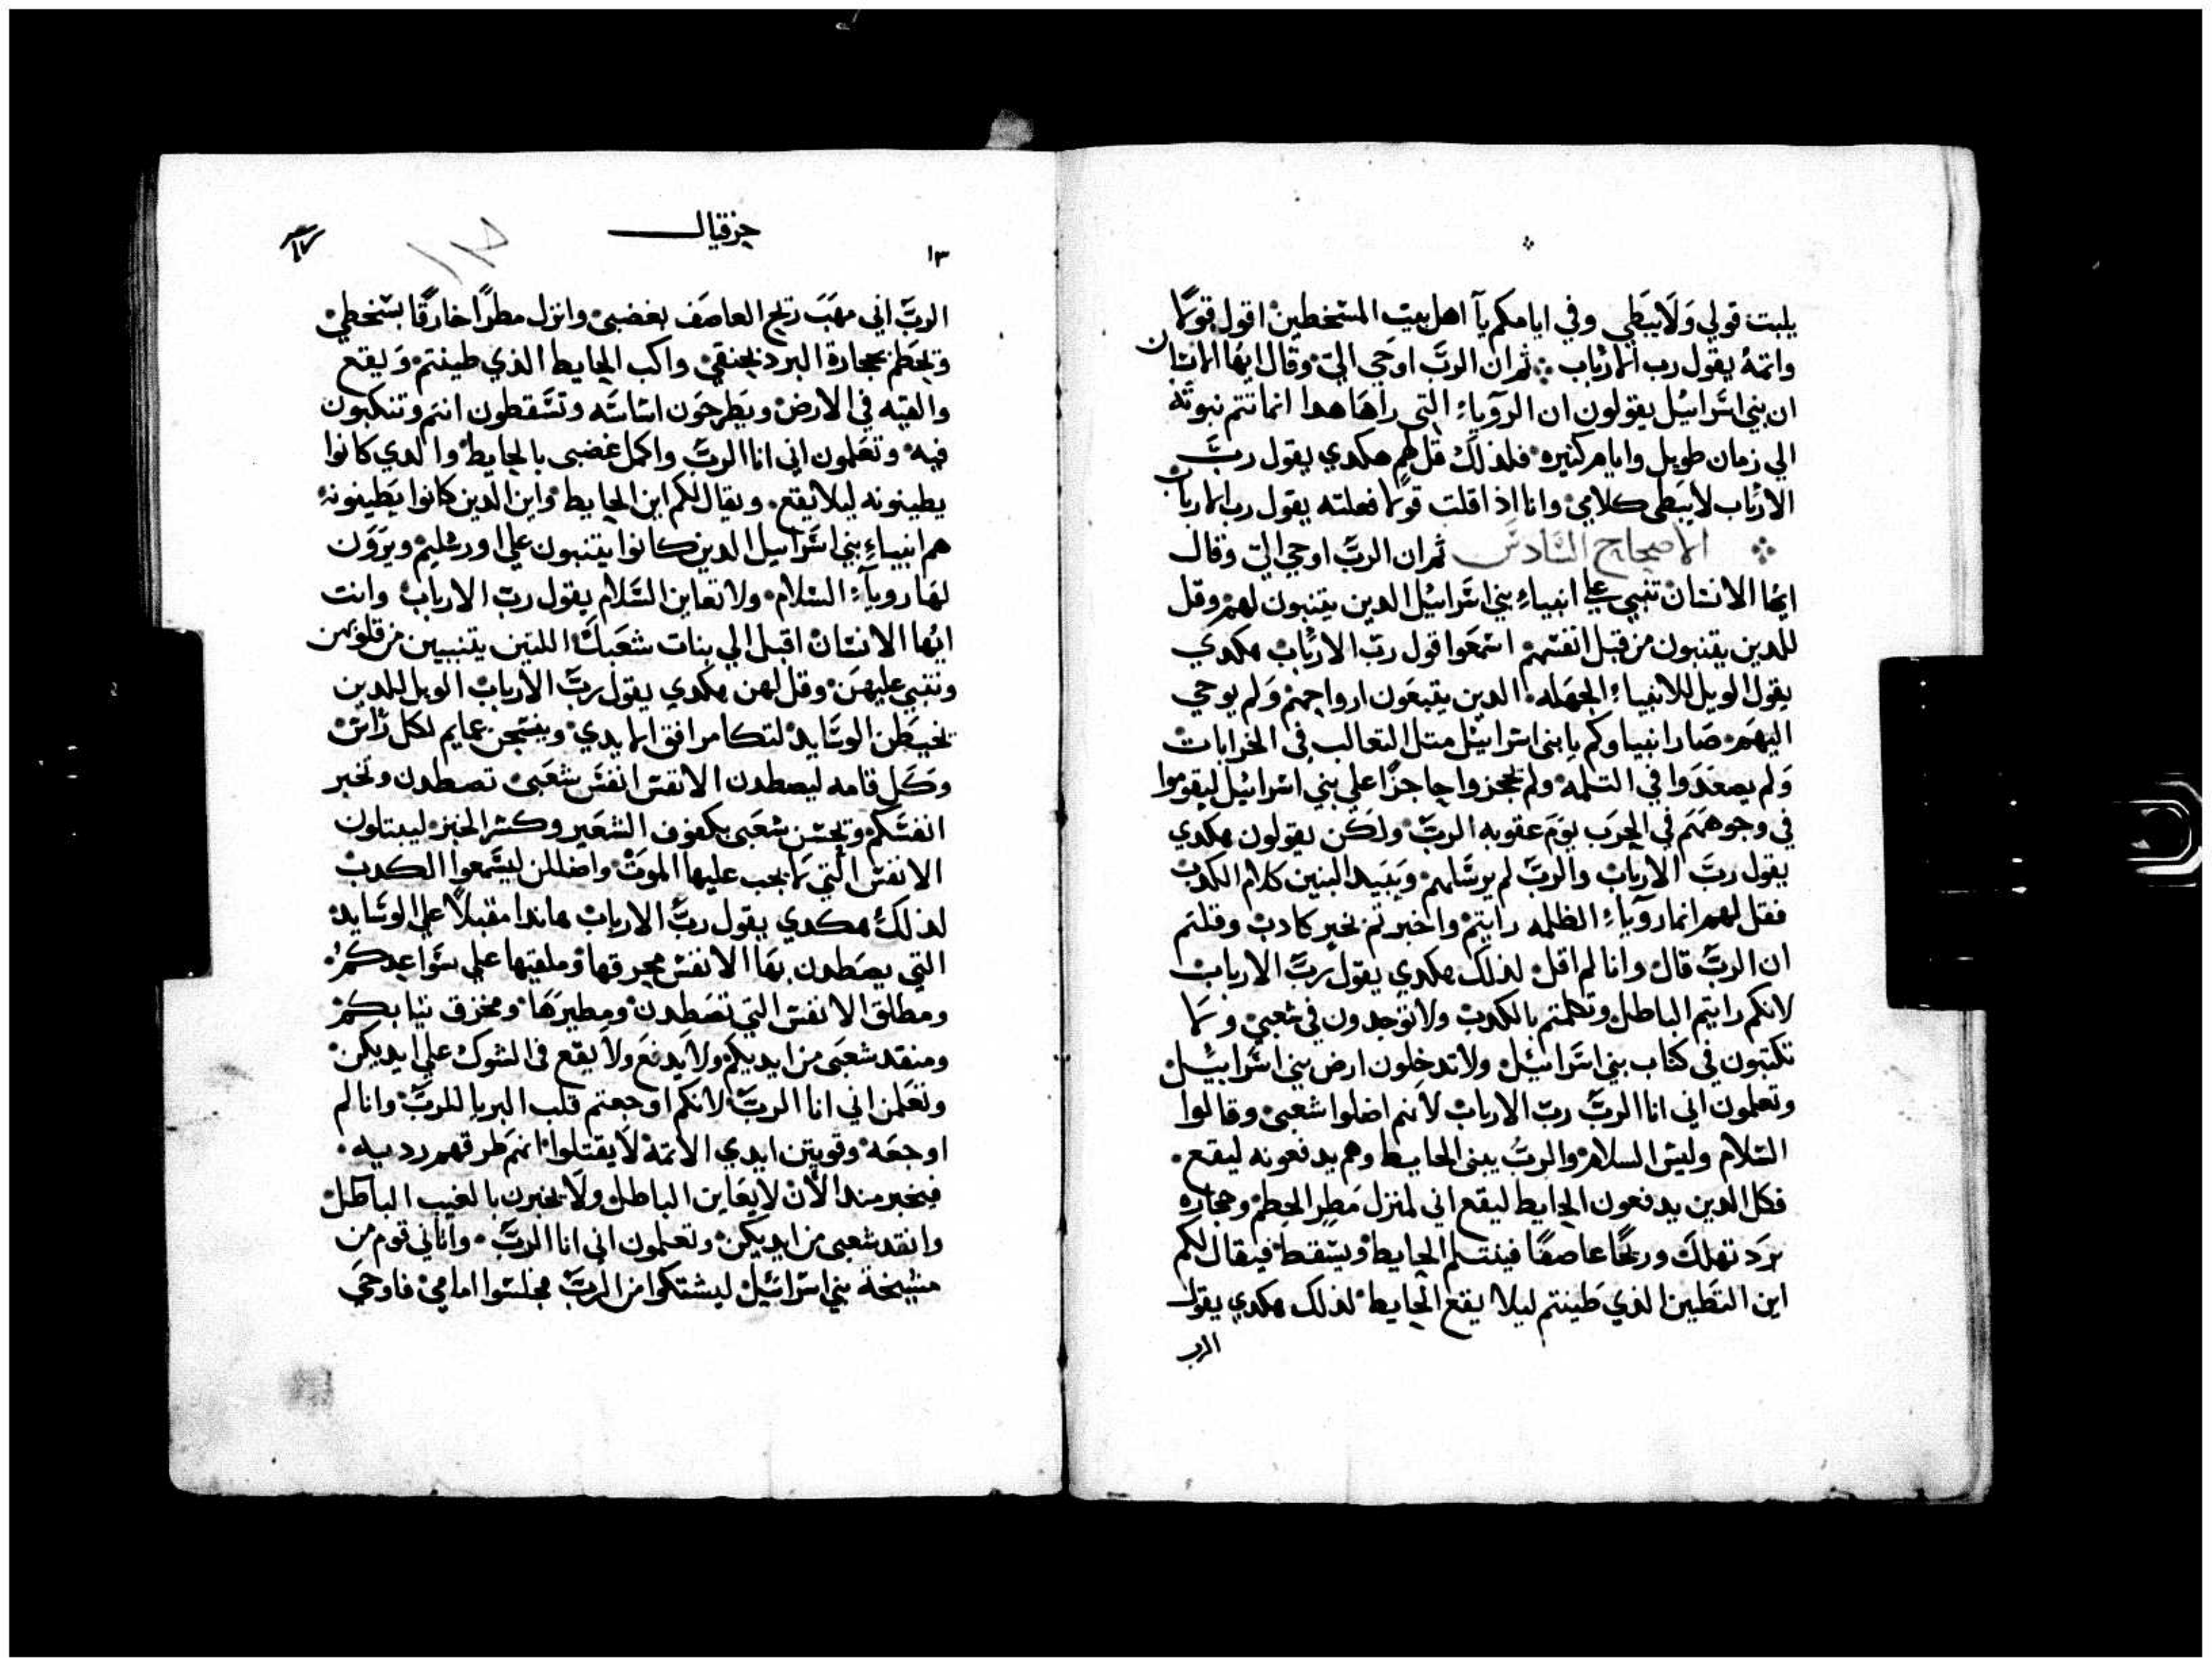 يلبت قولي وَلَا يبَطي وفي ايامكم يآ اهل بيت المسَخطين اقول قولًا
واتمهُ يقول رب الارباب ثمران الربَّ اوحي اليّ وقال ايها الانسان
ان بني اسَرائيل يقولون ان الروياءَ التى راهَا هدا انما تتم نبوته
الي زمان طويل وايام كثيره فلدلك قل لهم هكدي يقول ربّ
الارباب لايبَطى كلامي وانا اذا قلت قولا فعلته يقول رب الارباب
الاصحاح السَّادسَ ثمران الربَّ اوحي اليّ وقال
ايها الانسان تنبي علي انبياءِ بني اسَرائيل الدين يتنبون لهم وقل
للدين يتنبون من قبل انفسَهم اسَمعَوا قول ربّ الارباب هكدي
يقول الويل للانبياءِ الجهله الدين يتبعَون ارواحهم وَلم يوحي
اليهم صَار انبياوكم يابنى اسَرائيل متل التعالب فى الخرابات
وَلم يصعَدَوا في التلمه ولم يحجزوا حاجزًا علي بني اسَرائيل ليقوموا
فى وجوههَم في الحرَب يوَم عقوبه الربّ ولكَن يقولون هكدي
يقول ربّ الارباب والربّ لم يرسَلهم وَيبَيد البنين كلام الكدب
فقل لهم انما روَياءِ الظلمه رايتم واخبرتم بخبر كادب وقلتم
ان الربَّ قال وانا لم اقل لدلك هكدي يقول ربَّ الارباب
لانكم رايتم الباطل وتكلمتم بالكدب ولاتوَجدون في شعبي ولا
تكتبون في كتاب بني اسَرائيل ولاتدخلون ارض بني اسَرائيل
وتعلمون انى انا الربَّ ربّ الارباب لانهم اضلوا شعبي وقالوا
السَّلام وليسَ السلام والربُّ يبنى الحايط وهم يدفعونه ليقع
فكل الدين يدفعون الحايط ليقع انى لمنزل مَطر الحطم وحجاره
برَد تهلك وريحًا عاصفًا فينتلم الحايط ويسَقط فيقال لكم
اين التطين الذي طينتم ليلا يقع الحايط لدلك هكدي يقول
الرب
حزقيال
١٣
الربَّ انى مهَبَ ريح العاصَف بغضبى وانزل مطرًا خارقًا بسَخطي
وتحَطم بحجارة البرد بحنقي واكب الحايط الذي طينتم وَليقع
والقيه في الارض ويَطرحَون اسَاسَه وتسَقطون انتم وتنكبون
فيه وتعَلمون انى انا الربَّ واكمل غضبى بالحايط والدي كانوا
يطينونه ليلا يقع ويقال لكم اين الحايط واين الدين كانوا يَطينونه
هم انبياءِ بني اسَرائيل الدين كانوا يتنبون علي اورشليم ويروَن
لهَا روياءِ السَلام ولا تعاين السَّلام يقول ربّ الارباب وانت
ايُها الانسَان اقبل الي بنات شعَبكَ اللتين يتنبيين من قلوبهن
وتنبى عليهنَ وقل لهن هكدي يقول ربَّ الارباب الويل للدين
يخيطَن الوسَايد لتكامرافق الايدي ويفسَجن عمايم لكل راس
وَكل قامه ليصطدن الانفسَ انفسَ شعَبى تصطدن وتخبر
انفسَكم وتحَسَن شعَبى بكفوف الشعَير وكسَر الخبز ليبتلون
الانفسَ التي لا يجب عليها الموت واضللن ليسَمعوا الكدب
لدلكَ هكدي يقول ربُّ الارباب هاندا مقبلًا علي الوسَايد
التي يصَطدن بهَا الانفسَ محرقها وملقيها علي سَواعدكم
ومطلق الانفسَ التي تصَطدن ومطيرَهَا ومخزق تيابكم
ومنقد شعبَى من ايديكم ولا يَدنعَ ولَا يقع فى الشوك علي ايديكن
وتعَلمن اني انا الربّ لانكم اوجعتم قلب البريا للربَّ وانا لم
اوجعَه وقويتن ايدي الاتمة لَا يقتلوا انهم طرقهم رديه
فيخبر مندا الان لا يعَاين الباطل ولَا يخبرن بالغيب الباطل
وانقد شعبى من ايديكن وتعلمون انى انا الربَّ واتانى قوم من
مشيخة بني اسَرائيل ليشتكوا من الربّ فجلسَوا امامي فاوحَي